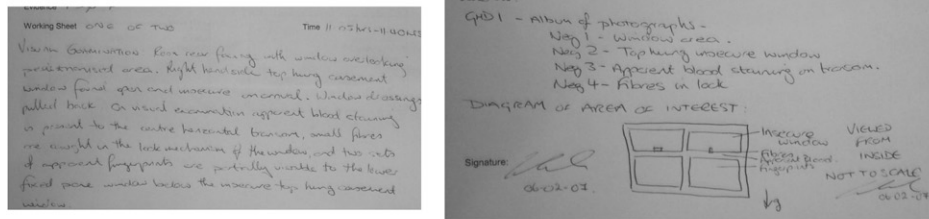 Working Sheet ONE OF TWO
Time 11 05hrs-11 40hrs
VISUAL EXAMINATION Rear facing with window overlooking
area. Right hand side top hung casement
window found open and insecure on arrival. Window dressings
pulled back On visual examination apparent blood staining
is present to the centre horizontal transom, small fibres
are caught in the lock mechanism of the window, and two sets
of apparent fingerprints are partially visible to the lower
fixed pane window below the insecure top hung casement
window.
GHD1 - Album of photographs -
Neg 1 - Window area.
Neg 2 - Top hung insecure window
Neg 3 - Apparent blood staining on transom.
Neg 4 - Fibres in lock
DIAGRAM OF AREA OF INTEREST:
Insecure window
Fibres
Apparent blood
Fingerprints
VIEWED
FROM
INSIDE
NOT TO SCALE
Signature:
06-02-07.
06-02-07